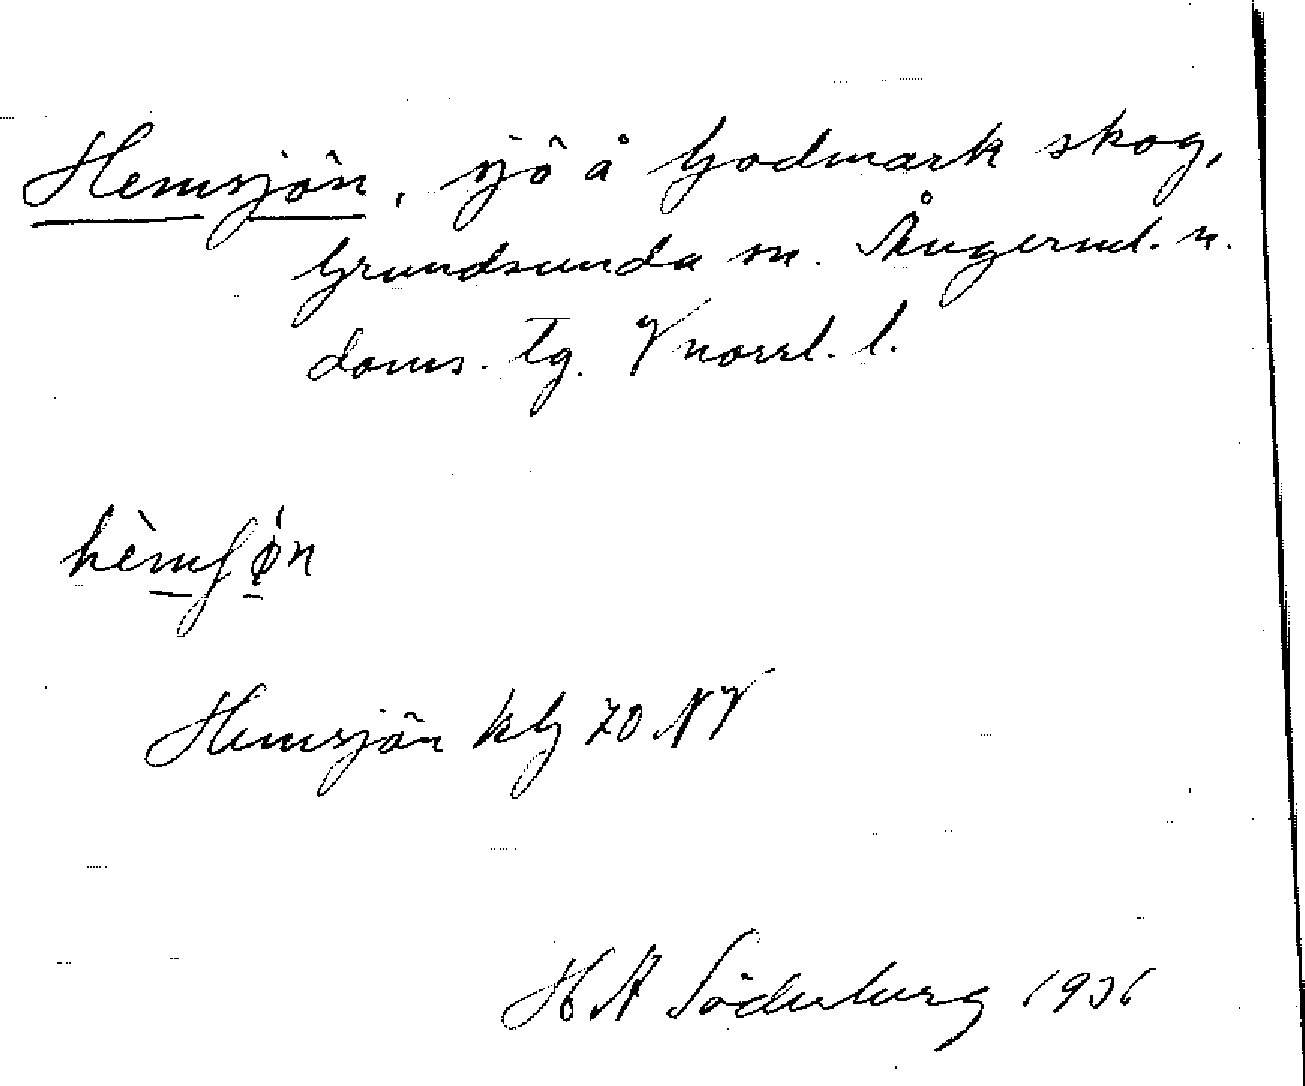 Hemsjön, sjö å Godmark skog,
Grundsunda sn. Ångerml. n.
doms. tg. Vnorrl. l.
hèmʃø̀n
Hemsjön kbg 70 NV
H A Söderberg 1936